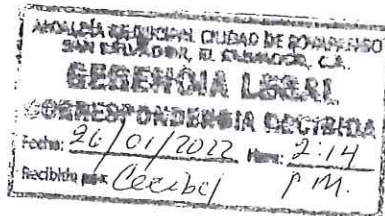 ALCALDÍA MUNICIPAL CIUDAD DE
SAN SALVADOR, EL SALVADOR, C.A.
GERENCIA LEGAL
CORRESPONDENCIA RECIBIDA
Fecha: 26/01/2022 Hora: 2:14
Recibida por: P M.